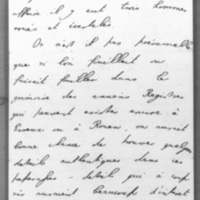 affaire il y eut trois hommes
roués et
Or n'est il pas présumable
que si l'on feuilletait ou
faisait feuilleter dans le
des anciens Registres
qui peuvent exister encore à
ou à Rouen, on aurait
bonne chance de trouver quelques
détails authentiques dans ces
détails qui à coup
sûr auraient beaucoup d'intérêt